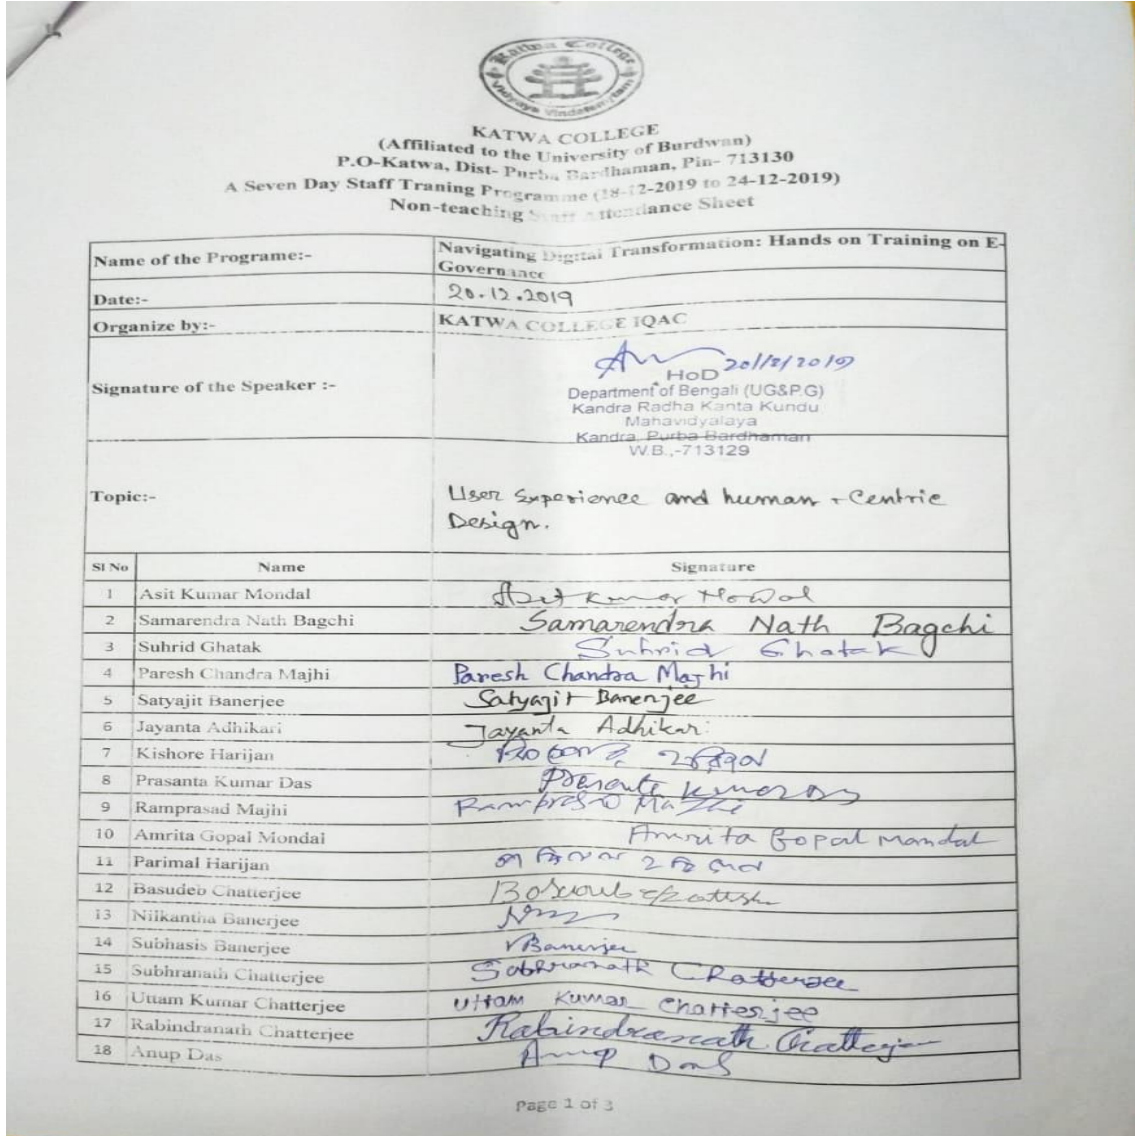 Katwa College
Vidyaya Vindatemritam
KATWA COLLEGE
(Affiliated to the University of Burdwan)
P.O-Katwa, Dist- Purba Bardhaman, Pin- 713130
A Seven Day Staff Traning Programme (18-12-2019 to 24-12-2019)
Non-teaching Staff Attendance Sheet
Name of the Programe:- Navigating Digital Transformation: Hands on Training on E-
Governance
Date:- 20.12.2019
Organize by:- KATWA COLLEGE IQAC
20/12/2019
HoD
Signature of the Speaker :- Department of Bengali (UG&P.G)
Kandra Radha Kanta Kundu
Mahavidyalaya
Kandra, Purba Bardhaman
W.B.,-713129
Topic:- User Experience and human - Centric
Design.
Sl No Name Signature
1 Asit Kumar Mondal Asit Kumar Mondal
2 Samarendra Nath Bagchi Samarendra Nath Bagchi
3 Suhrid Ghatak Suhrid Ghatak
4 Paresh Chandra Majhi Paresh Chandra Majhi
5 Satyajit Banerjee Satyajit Banerjee
6 Jayanta Adhikari Jayanta Adhikari
7 Kishore Harijan
8 Prasanta Kumar Das Prasanta Kumar Das
9 Ramprasad Majhi Ramprasad Majhi
10 Amrita Gopal Mondal Amrita Gopal Mandal
11 Parimal Harijan
12 Basudeb Chatterjee
13 Nilkantha Banerjee
14 Subhasis Banerjee Banerjee
15 Subhranath Chatterjee Subhranath Chatterjee
16 Uttam Kumar Chatterjee Uttam Kumar Chatterjee
17 Rabindranath Chatterjee Rabindranath Chatterjee
18 Anup Das Anup Das
Page 1 of 3